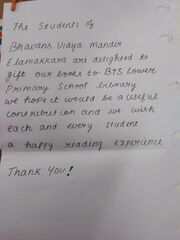 The Students of
Bhavans Vidya mandir
Elamakkara are delighted to
gift our books to BTS Lower
Primary School library
we hope it would be a useful
contribution and we wish
each and every student
a happy reading experience
Thank You!